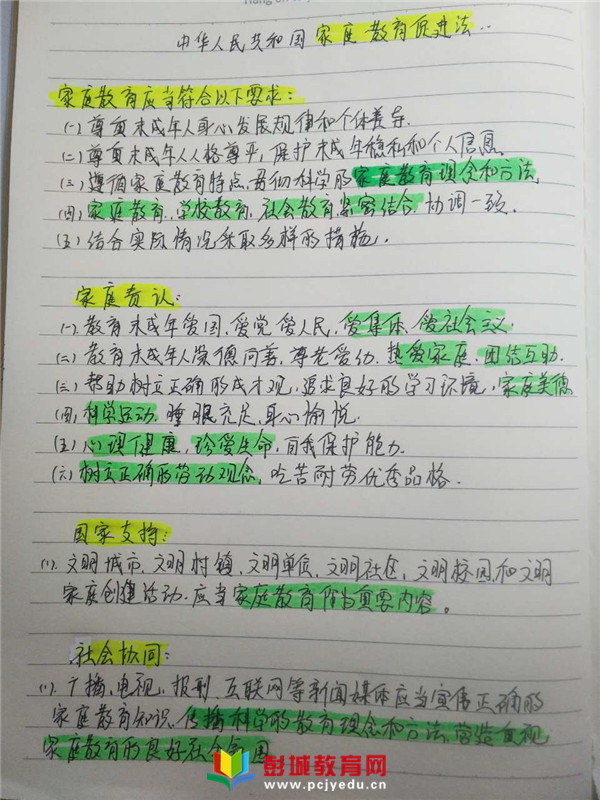 中华人民共和国家庭教育促进法..
家庭教育应当符合以下要求：
(一)尊重未成年人身心发展规律和个体差异.
(二)尊重未成年人人格尊严,保护未成年隐私和个人信息
(三)遵循家庭教育特点,贯彻科学的家庭教育理念和方法
(四)家庭教育、学校教育、社会教育紧密结合,协调一致.
(五)结合实际情况采取多样的措施.
家庭责认：
(一)教育未成年爱国,爱党爱人民,爱集体,爱社会主义
(二)教育未成年人崇德向善,尊老爱幼,热爱家庭,团结互助.
(三)帮助树立正确的成才观,追求良好的学习环境,家庭美德
(四)科学运动,睡眠充足,身心愉悦.
(五)心理健康,珍爱生命,自我保护能力.
(六)树立正确的劳动观念,吃苦耐劳优秀品格.
国家支持：
(1).文明城市、文明村镇、文明单位、文明社区、文明校园和文明
家庭创建活动,应当家庭教育作为重要内容。
社会协同：
(1).广播、电视、报刊、互联网等新闻媒体应当宣传正确的
家庭教育知识,传播科学的教育理念和方法,营造重视
家庭教育的良好社会氛围
彭城教育网
www.pcjyedu.cn/